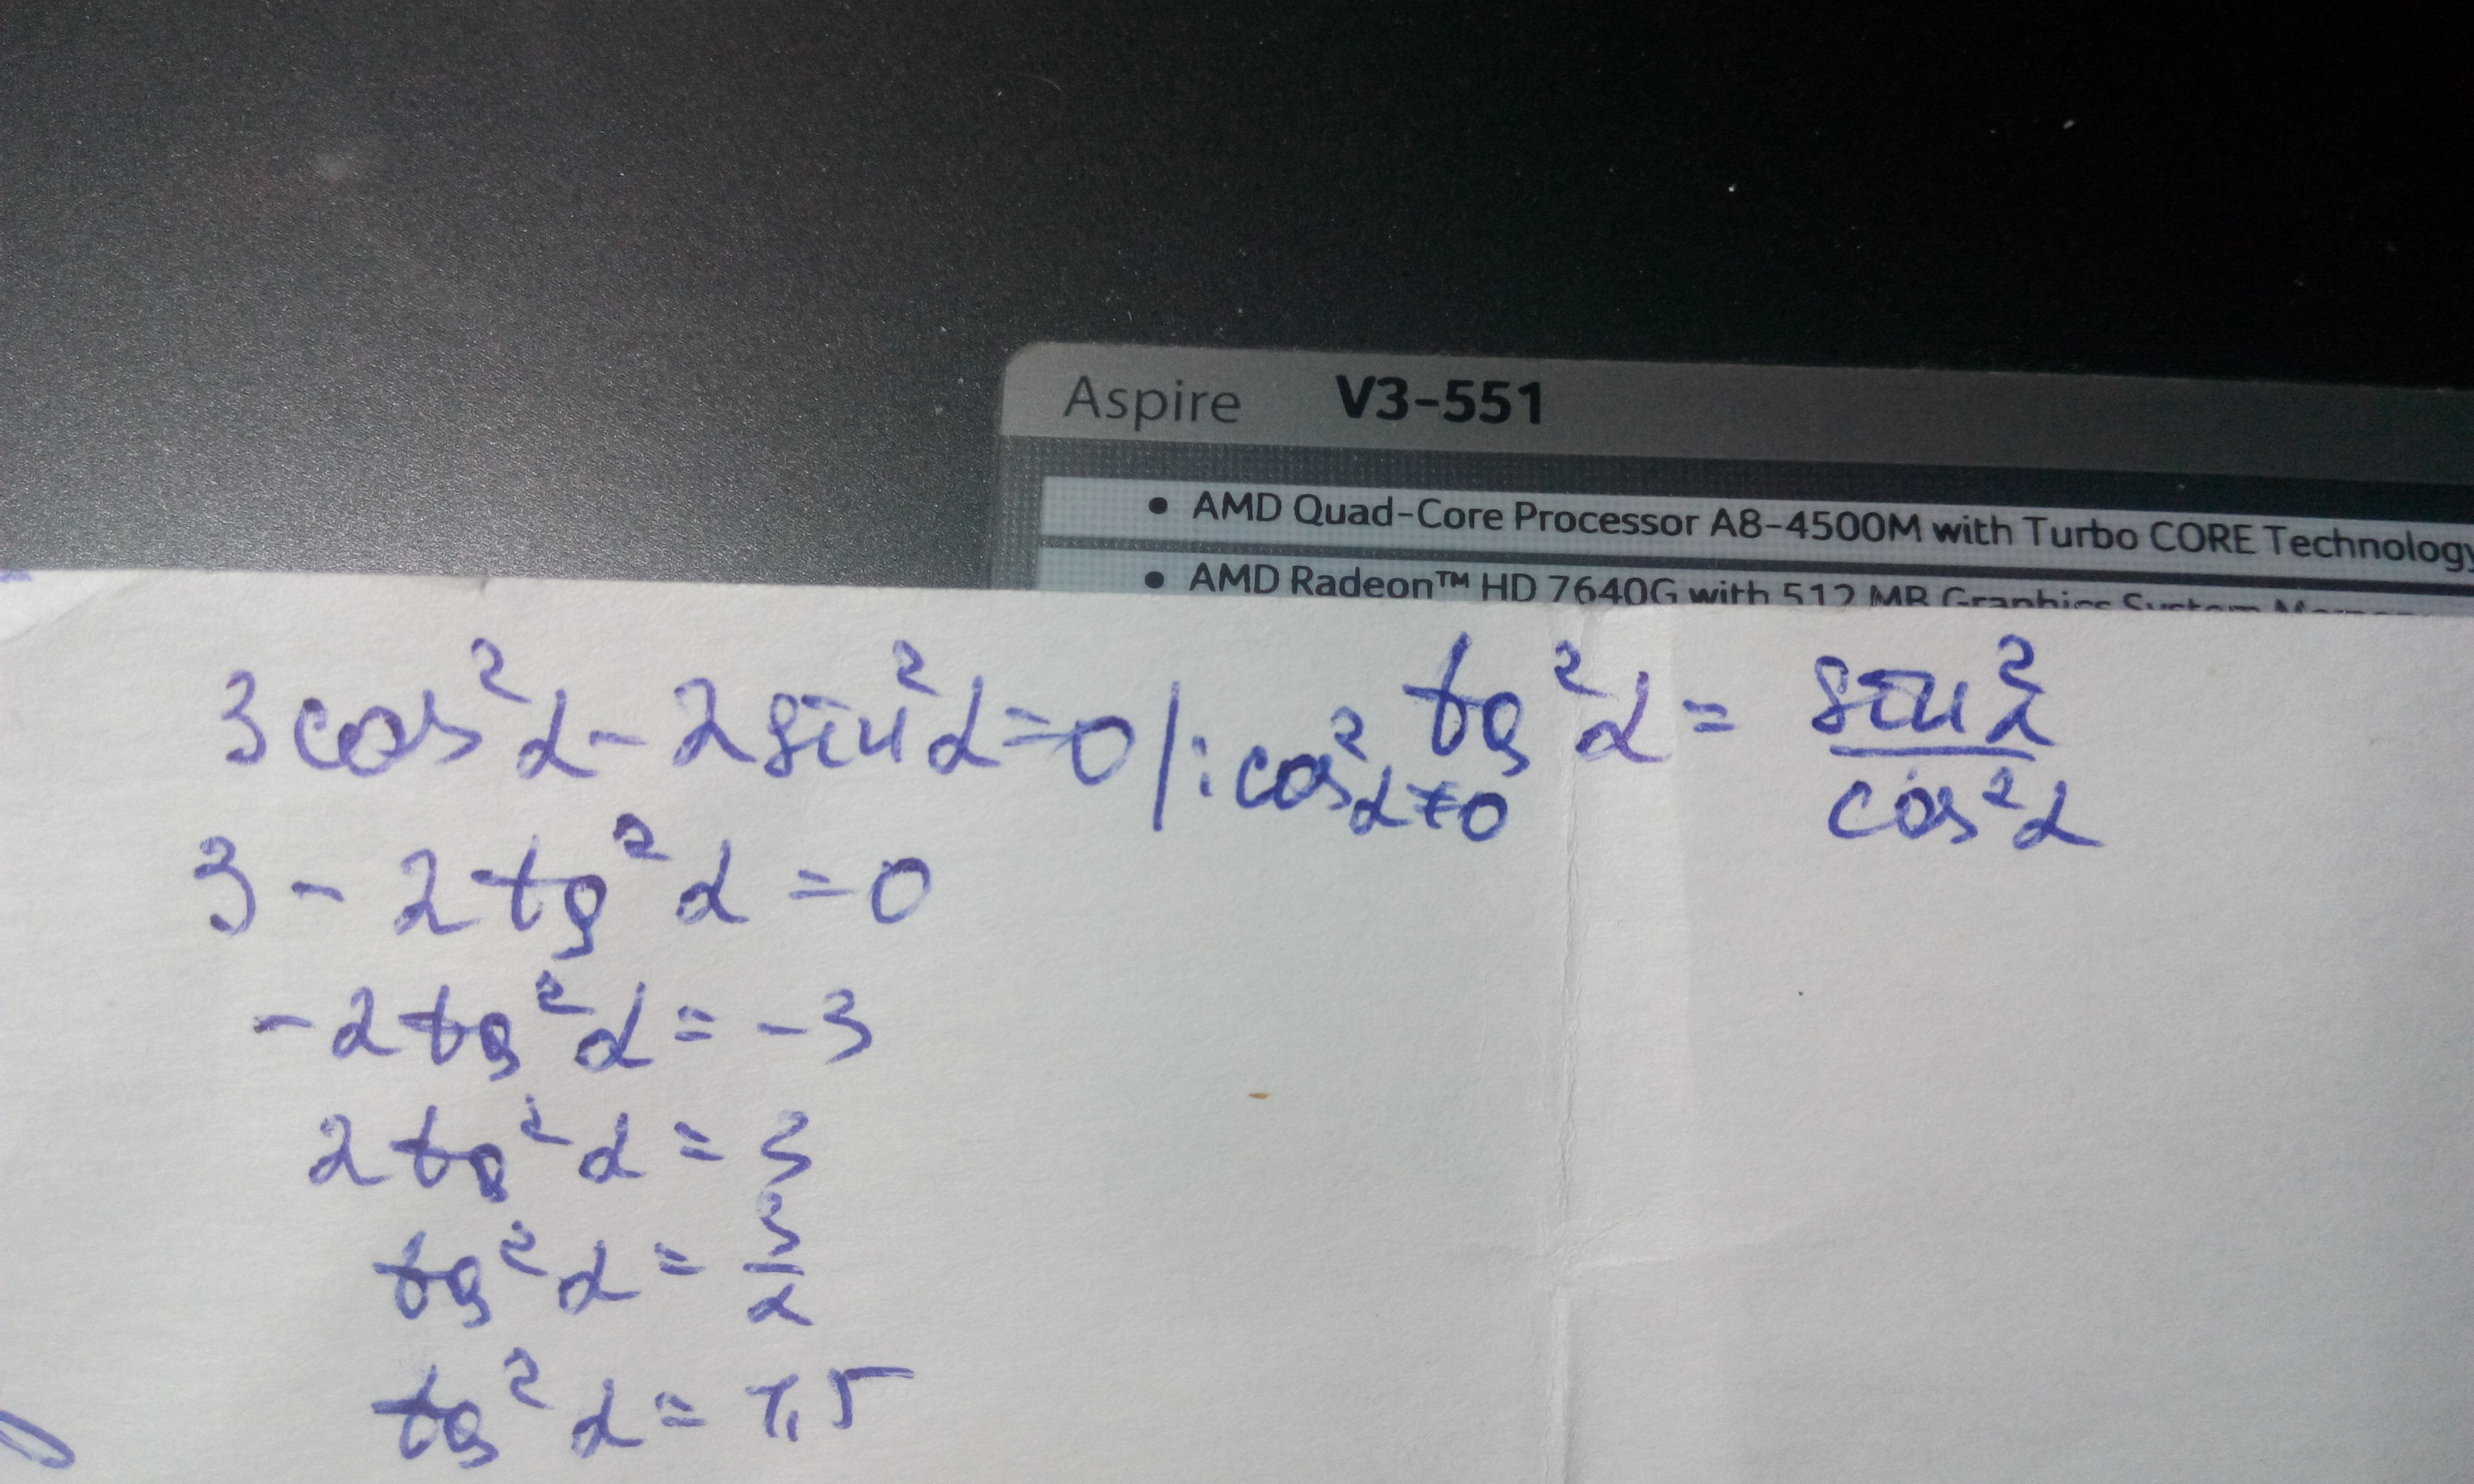 Aspire V3-551
• AMD Quad-Core Processor A8-4500M with Turbo CORE Technology
• AMD Radeon™ HD 7640G with 512 MB Graphics System
3cos²α - 2sin²α = 0 | : cos²α ≠ 0
tg²α = sin²α / cos²α
3 - 2tg²α = 0
-2tg²α = -3
2tg²α = 3
tg²α = 3/2
tg²α = 1,5